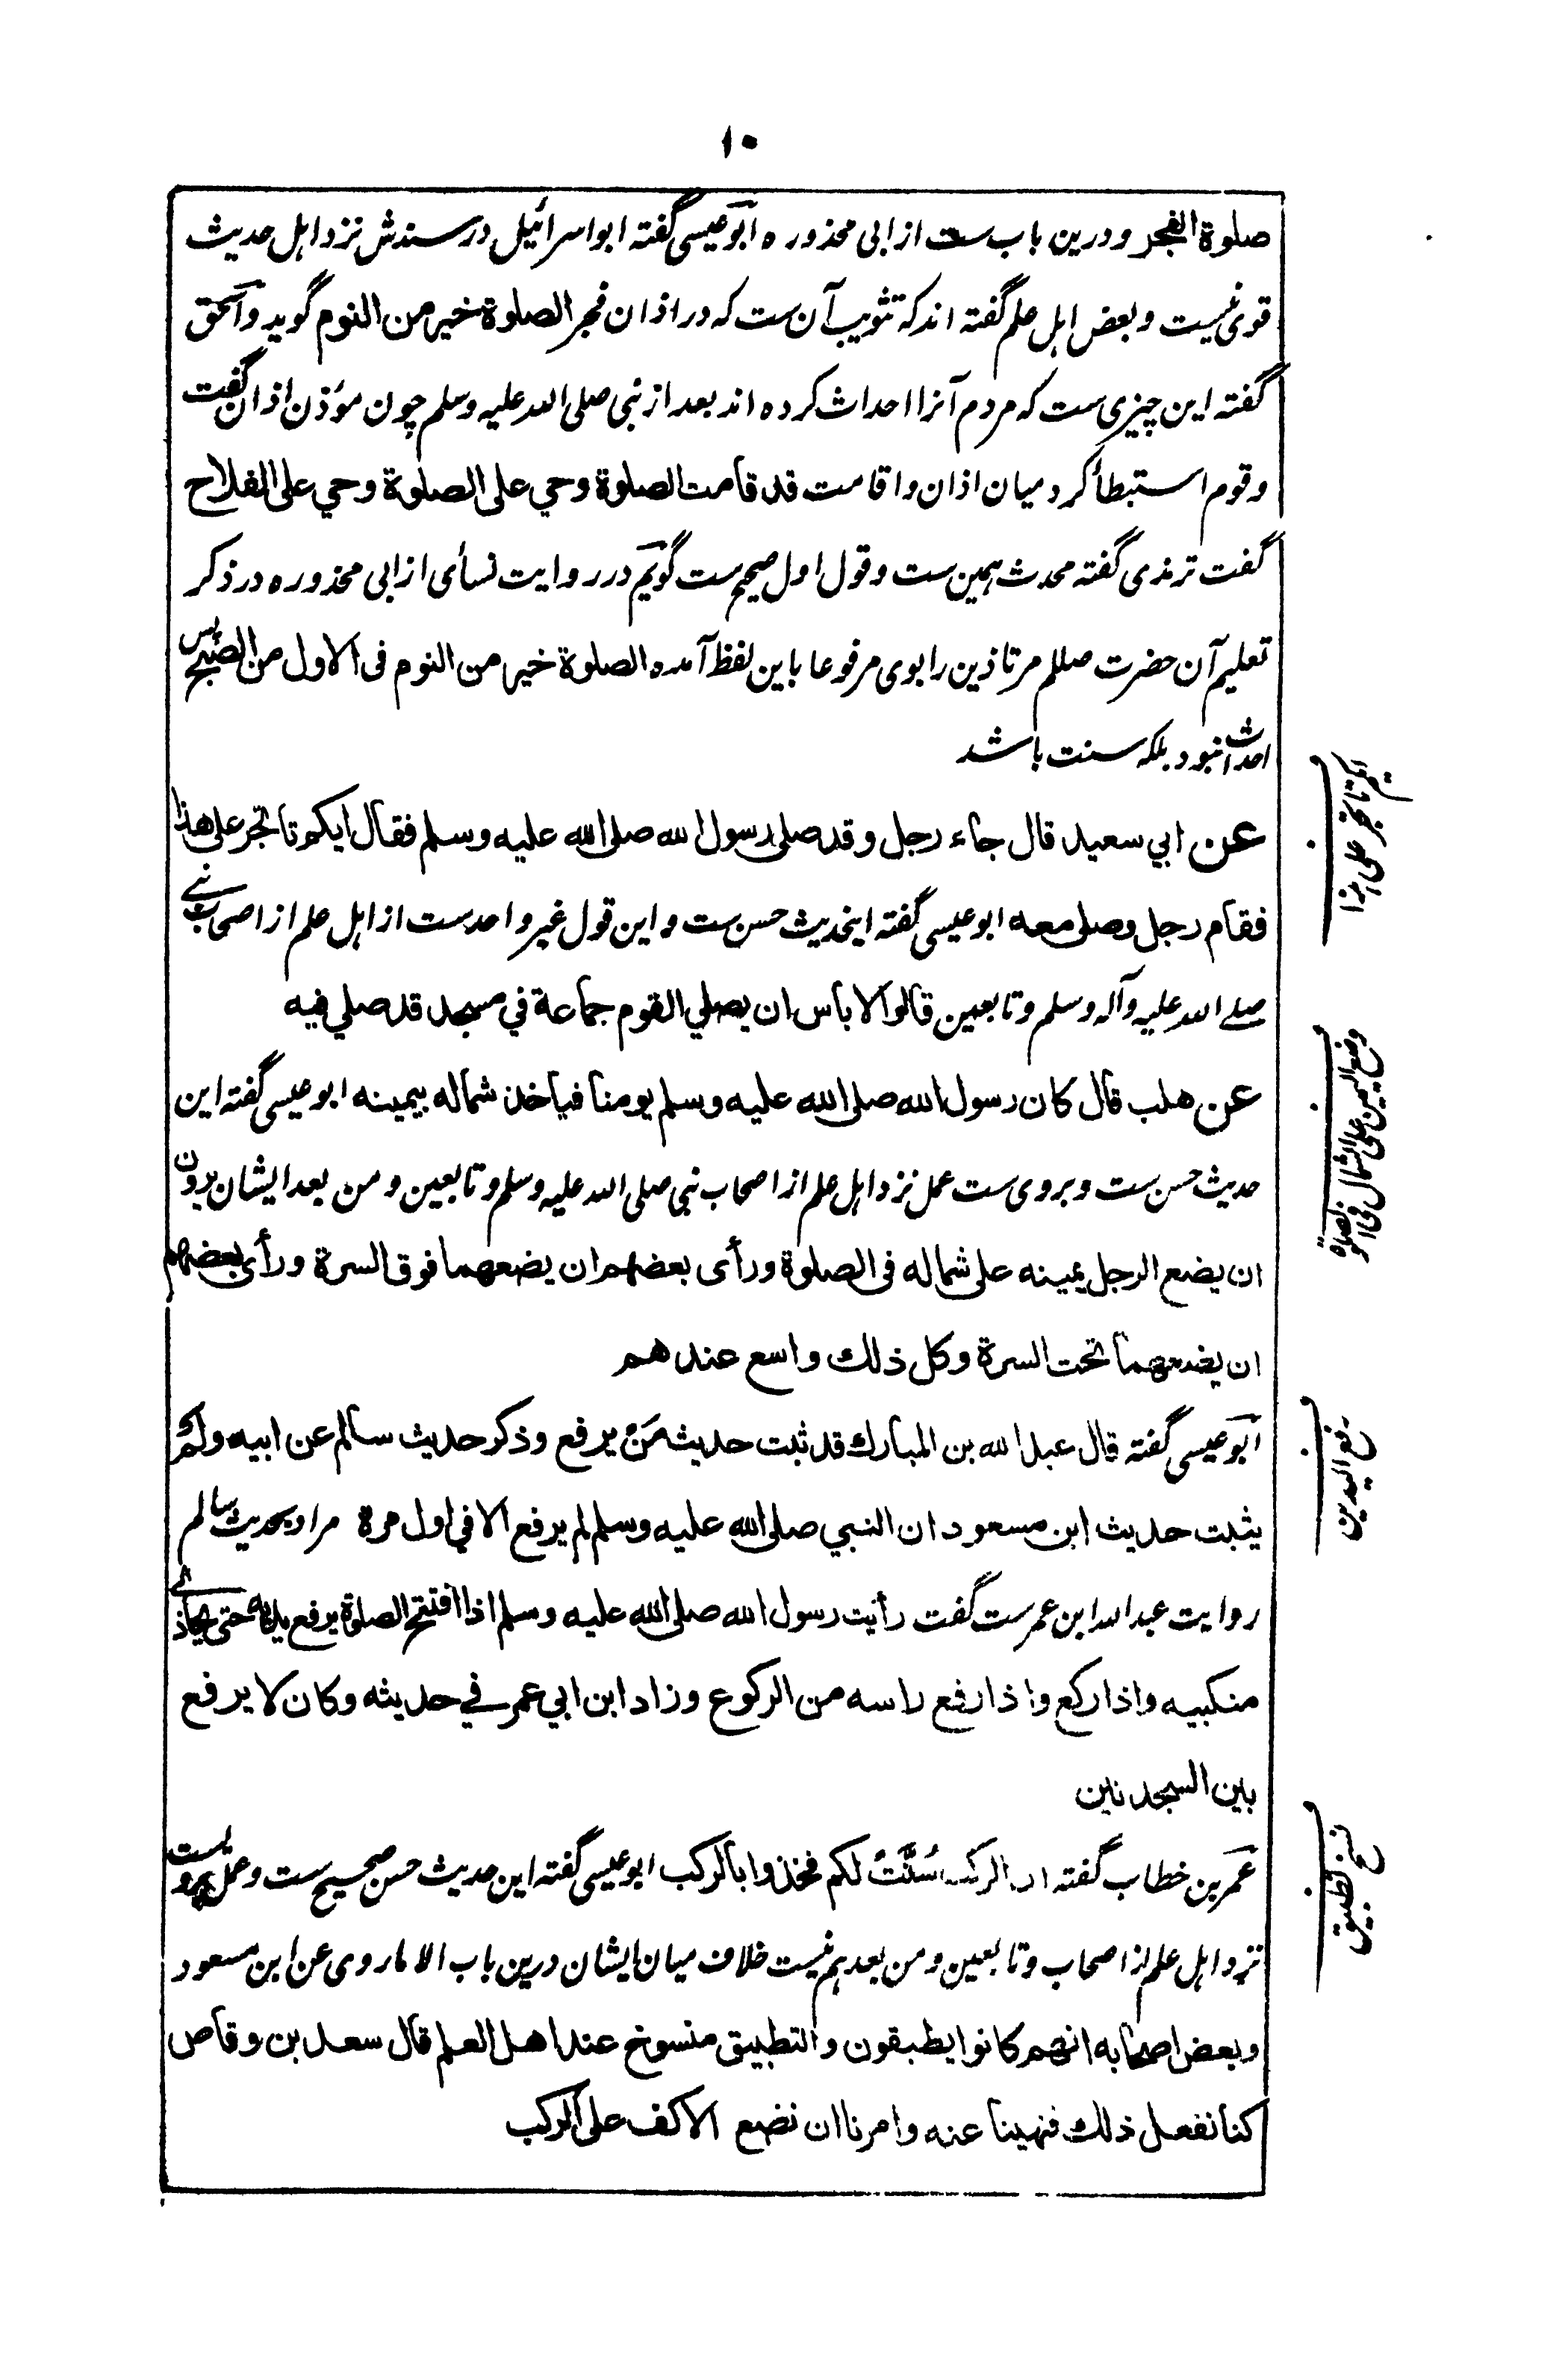 ۱۰
صلوة الفجر و درین باب ست از ابی محذوره ابو عیسی گفته ابو اسرائیل در سندش نزد اهل حدیث
قوی نیست و بعض اهل علم گفته اند که تثویب آن ست که در اذان فجر الصلوة خیر من النوم گوید و اسحق
گفته این چیزی ست که مردم آنرا احداث کرده اند بعد از نبی صلی الله علیه وسلم چون موذن اذان گفت
و قوم استبطأ کرد میان اذان و اقامت قد قامت الصلوة وحي على الصلوة وحي على الفلاح
گفت ترمذی گفته محدث همین ست و قول اول صحیح ست گویم در روایت نسائی از ابی محذوره در ذکر
تعلیم آن حضرت صللم مر تاذین را بوی مرفوعا باین لفظ آمده الصلوة خیر من النوم فی الاول من الصبح پس
احداث نبود بلکه سنت باشد
عن ابي سعيد قال جاء رجل وقد صلى رسول الله صلى الله عليه وسلم فقال ايكم تاتجر على هذا
فقام رجل وصلى معه ابو عیسی گفته اینحدیث حسن ست و این قول غیر واحد ست از اهل علم از اصحاب نبی
صلی الله علیه وآله وسلم و تابعین قالوا لا باس ان يصلي القوم جماعة في مسجد قد صلي فيه
عن هلب قال كان رسول الله صلى الله عليه وسلم يومنا فياخذ شماله بيمينه ابو عیسی گفته این
حدیث حسن ست و بروی ست عمل نزد اهل علم از اصحاب نبی صلی الله علیه وسلم و تابعین و من بعد ایشان یرون
ان يضع الرجل يمينه على شماله فى الصلوة ورأى بعضهم ان يضعهما فوق السرة ورأى بعضهم
ان يضعهما تحت السرة وكل ذلك واسع عندهم
ابو عیسی گفته قال عبد الله بن المبارك قد ثبت حديث من يرفع وذكر حديث سالم عن ابيه ولم
يثبت حديث ابن مسعود ان النبي صلى الله عليه وسلم لم يرفع الا في اول مرة مراد بحدیث سالم
روایت عبد الله ابن عمر ست گفت رأيت رسول الله صلى الله عليه وسلم اذا افتتح الصلوة يرفع يديه حتى يحاذي
منكبيه واذا ركع واذا رفع راسه من الركوع وزاد ابن ابي عمر في حديثه وكان لا يرفع
بين السجدتين
عمر بن خطاب گفته ان الركب سُنَّتْ لكم فخذوا بالركب ابو عیسی گفته این حدیث حسن صحیح ست و عمل برو ست
نزد اهل علم از اصحاب و تابعین و من بعدهم نیست خلاف میان ایشان درین باب الا ما روی عن ابن مسعود
وبعض اصحابه انهم كانوا يطبقون والتطبيق منسوخ عند اهل العلم قال سعد بن وقاص
كنا نفعل ذلك فنهينا عنه وامرنا ان نضع الاكف على الركب
ایکم تاتجر علی هذا
وضع الیمین علی الشمال فی الصلوة
رفع الیدین
نسخ تطبیق